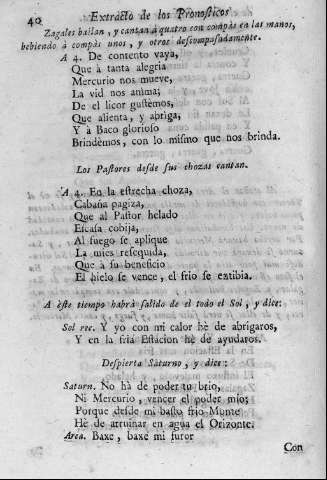 40 Extracto de los Pronosticos
Zagales bailan, y cantan à quatro con compàs en las manos,
bebiendo à compàs unos, y otros descompasadamente.
A 4. De contento vaya,
Que à tanta alegria
Mercurio nos mueve,
La vid nos anima;
De el licor gustèmos,
Que alienta, y abriga,
Y à Baco glorioso
Brindèmos, con lo mismo que nos brinda.
Los Pastores desde sus chozas cantan.
A 4. En la estrecha choza,
Cabaña pagiza,
Que al Pastor helado
Escasa cobija,
Al fuego se aplique
La mies resequida,
Que à su beneficio
El hielo se vence, el frio se entibia.
A èste tiempo habrà salido de el todo el Sol, y dice:
Sol rec. Y yo con mi calor hè de abrigaros,
Y en la fria Estacion hè de ayudaros.
Despierta Saturno, y dice:
Saturn. No hà de poder tu brio,
Ni Mercurio, vencer el poder mio;
Porque desde mi basto frio Monte
Hè de arruinar en agua el Orizonte.
Area. Baxe, baxe mi furor
Con